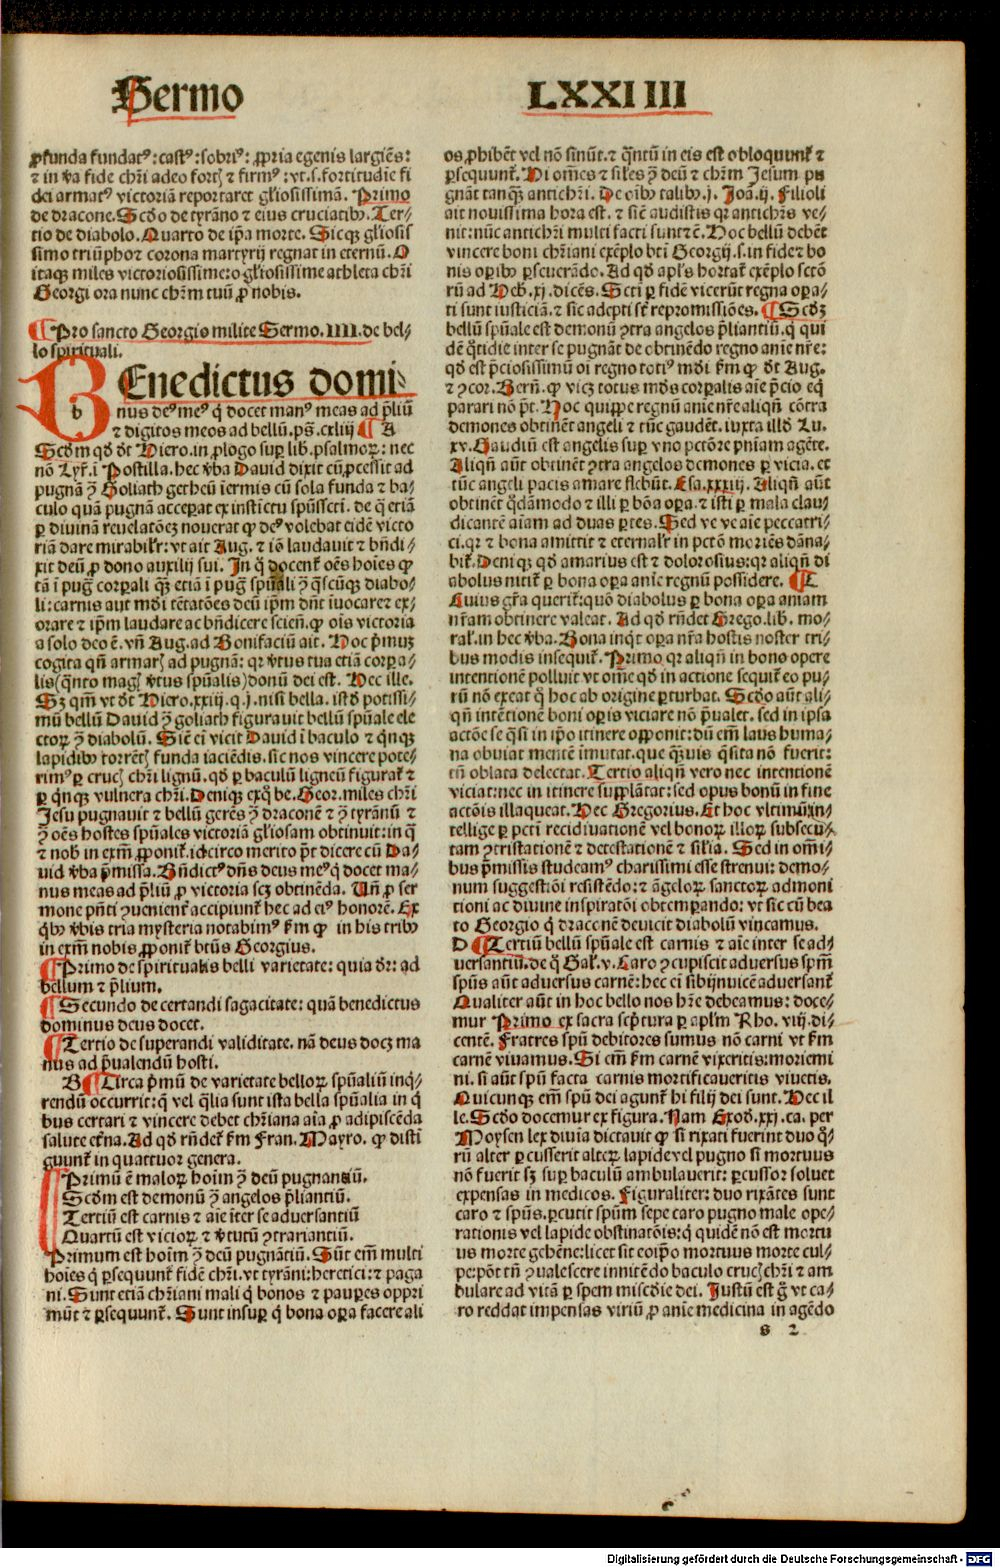 Sermo
LXXIIII
ꝓfunda fundatꝰ: castꝰ: sobriꝰ: ꝓpria egenis largiēs:
⁊ in v̄a fide chr̄i adeo fort⁊ ⁊ firmꝰ: vt.s.fortitudīe fi
dei armatꝰ victoriā reportaret gl̄iosissimā. Primo
de dracone. Scd̄o de tyrāno ⁊ eius cruciatibꝰ. Ter⸗
tio de diabolo. Quarto de ip̄a morte. Sicqꝫ gl̄iosis
simo triūpho ⁊ corona martyrij regnat in eternū. O
itaqꝫ miles victoriosissime: o gl̄iosissime athleta chr̄i
Georgi ora nunc chr̄m tuū ꝓ nobis.
¶ Pro sancto Georgio milite Sermo.IIII.de bel⸗
lo spirituali.
BEnedictus domi⸗
nus deꝰ meꝰ q̇ docet manꝰ meas ad p̄liū
⁊ digitos meos ad bellū. ps̄.cxliij ¶ A
Scd̄m qd̓ dt̄ Hiero.in ꝓlogo suꝑ lib.psalmoꝝ: nec
nō Lyr̄.ī Postilla.hec v̄ba Dauid dixit cū ꝓcessit ad
pugnā ꝯ̄ Goliath getheū īermis cū sola funda ⁊ ba⸗
culo quā pugnā acceꝑat ex instīctu sp̄ussc̄ti. de q̇ etiā
ꝑ diuinā reuelatōeꝫ nouerat ꝙ deꝰ volebat eidē victo
riā dare mirabilr̄: vt ait Aug. ⁊ iō laudauit ⁊ bn̄di⸗
xit deū ꝓ dono auxilij sui. In q̇ docent̄ oēs hoīes ꝙ
tā ī pug̃ corꝑali qꝫ etiā ī pug̃ spūali ꝯ̄ q̄scūqꝫ diabo⸗
li: carnis aut mūdi tētatōes deū ip̄m dn̄t īuocare ⁊ ex⸗
orare ⁊ ip̄m laudare ac bn̄dicere sciēn̄. ꝙ oīs victoria
a solo deo ē. vn̄ Aug.ad Bonifaciū ait. Hoc p̄muꝫ
cogita qn̄ armar⁊ ad pugnā: qr v̄tus tua etiā corꝑa⸗
lis(q̄nto mag⁊ v̄tus spūalis)donū dei est. Hec ille.
Sꝫ qm̄ vt dt̄ Hiero.xxiij.q.j.nisi bella. istd̓ potissi⸗
mū bellū Dauid ꝯ̄ goliath figurauit bellū spūale ele
ctoꝝ ꝯ̄ diabolū. Sic̄ ei vicit Dauid ī baculo ⁊ q̇nqꝫ
lapidibꝰ torrēt⁊ funda iaciēdis. sic nos vincere pote⸗
rimꝰ ꝑ cruc⁊ chr̄i lignū. qd̓ ꝑ baculū ligneū figurat̄ ⁊
ꝑ q̇nqꝫ vulnera chr̄i. Deniqꝫ exq̇ be. Geor.miles chr̄i
Jesu pugnauit ⁊ bellū gerēs ꝯ̄ draconē ⁊ ꝯ̄ tyrānū ⁊
ꝯ̄ oēs hostes spūales victoriā gl̄iosam obtinuit: in q̇
⁊ nob̄ in exm̄ ꝓponit̄. idcirco merito p̄t dicere cū Da⸗
uid v̄ba p̄missa. Bn̄dictꝰ dn̄s deus meꝰ q̇ docet ma⸗
nus meas ad p̄liū ꝓ victoria scꝫ obtinēda. Un̄ ꝓ ser
mone pn̄ti ꝯuenient̄ accipiunt̄ hec ad eiꝰ honorē. Ex
q̇bꝰ v̄bis tria mysteria notabimꝰ fm̄ ꝙ in his tribꝰ
in exm̄ nobis ꝓponit̄ btūs Georgius.
¶ Primo de spiritualis belli varietate: quia dr̄: ad
bellum ⁊ p̄lium.
¶ Secundo de certandi sagacitate: quā benedictus
dominus deus docet.
¶ Tertio de superandi validitate. nā deus docꝫ ma
nus ad p̄ualendū hosti.
B ¶ Circa p̄mū de varietate belloꝝ spūaliū inq̇⸗
rendū occurrit: q̄ vel q̄lia sunt ista bella spūalia in q̇
bus certari ⁊ vincere debet chr̄iana aīa ꝓ adipiscēda
salute et̄na. Ad qd̓ rn̄det̄ fm̄ Fran. Mayro. ꝙ disti
guunt̄ in quattuor genera.
¶ Primū ē maloꝝ hoīm ꝯ̄ deū pugnantiū.
Scd̄m est demonū ꝯ̄ angelos p̄liantiū.
Tertiū est carnis ⁊ aīe īter se aduersantiū
Quartū est vicioꝝ ⁊ v̄tutū ꝯtrariantiū.
Primum est hoīm ꝯ̄ deū pugnātiū. Sūt em̄ multi
hoīes q̇ ꝑsequunt̄ fidē chr̄i. vt tyrāni: heretici: ⁊ paga
ni. Sunt etiā chr̄iani mali q̇ bonos ⁊ pauꝑes oppri
mūt ⁊ ꝑsequunt̄. Sunt insuꝑ q̇ bona oꝑa facere ali
os ꝓhibēt vel nō sinūt. ⁊ q̄ntū in eis est obloquunt̄ ⁊
ꝑsequunt̄. Hi om̄es ⁊ sil̄es ꝯ̄ deū ⁊ chr̄m Jesum pu
gnāt tanqꝫ antichr̄i. De oībꝰ talibꝰ.j. Joā.ij. Filioli
ait nouissima hora est. ⁊ sic̄ audistis qr antichr̄s ve⸗
nit: nūc antichr̄i multi facti sunt ⁊c̄. Hoc bellū debēt
vincere boni chr̄iani exēplo bt̄i Georgij.s.in fide ⁊ bo
nis oꝑibꝰ ꝑseuerādo. Ad qd̓ apl̄s hortat̄ exēplo sctō
rū ad Heb.xj.dicēs. Scti ꝑ fidē vicerūt regna oꝑa⸗
ti sunt iusticiā. ⁊ sic adepti st̄ repromissiōes. ¶ Scd̓ꝫ
bellū spūale est demonū ꝯtra angelos p̄liantiū. q̇ qui
dē q̇tidie inter se pugnāt de obtinēdo regno aīe nr̄e:
qd̓ est p̄ciosissimū oī regno totiꝰ mūdi fm̄ ꝙ dt̄ Aug.
⁊ ꝯcor. Bern̄. ꝙ vicꝫ totus mūds corꝑalis aīe p̄cio eq̇
parari nō p̄t. Hoc quippe regnū aīe nr̄e aliqn̄ cōtra
demones obtinēt angeli ⁊ tūc gaudēt. iuxta illd̓ Lu.
xv. Gaudiū est angelis suꝑ vno pctōre pn̄iam agēte.
Aliqn̄ aūt obtinēt ꝯtra angelos demones ꝑ vicia. et
tūc angeli pacis amare flebūt. Esa.xxxiij. Aliqn̄ aūt
obtinēt q̄dāmodo ⁊ illi ꝑ bōa oꝑa. ⁊ isti ꝑ mala clau⸗
dicantē aīam ad duas ꝑtes. Sed ve ve aīe peccatri⸗
ci. qr ⁊ bona amittit ⁊ eternalr̄ in pctō moriēs dāna⸗
bit̄. Deniqꝫ qd̓ amarius est ⁊ dolorosius: qr aliqn̄ di
abolus nitit̄ ꝑ bona oꝑa aīe regnū possidere. ¶ C
Cuius gr̄a querit̄: quō diabolus ꝑ bona oꝑa aīam
nr̄am obtinere valeat. Ad qd̓ rn̄det Grego.lib. mo⸗
ral̄.in hec v̄ba. Bona inq̇t oꝑa nr̄a hostis noster tri⸗
bus modis insequit̄. Primo qr aliqn̄ in bono opere
intentionē polluit vt om̄e qd̓ in actione sequit̄ eo pu⸗
rū nō exeat q̇ hoc ab origine ꝑturbat. Scd̄o aūt ali⸗
qn̄ intētionē boni oꝑis viciare nō p̄ualet. sed in ipsa
actōe se q̄si in ip̄o itinere oꝑponit: dū em̄ laus huma⸗
na obuiat mentē īmutat. que q̄uis q̄sita nō fuerit:
tn̄ oblata delectat. Tertio aliqn̄ vero nec intentionē
viciat: nec in itinere supplātat: sed opus bonū in fine
actōis illaqueat. Hec Gregorius. Et hoc vltimū in⸗
tellige ꝑ pcti recidiuationē vel bonoꝝ illoꝝ subsecu⸗
tam ꝯtristationē ⁊ detestationē ⁊ sil̄ia. Sed in om̄i⸗
bus p̄missis studeamꝰ charissimi esse strenui: demo⸗
num suggestiōi resistēdo: ⁊ āgeloꝝ sanctoꝝ admoni
tioni ac diuine inspiratōi obtemꝑando: vt sic cū bea
to Georgio q̇ draconē deuicit diabolū vincamus.
D ¶ Tertiū bellū spūale est carnis ⁊ aīe inter se ad⸗
uersantiū. de q̇ Gal̄.v. Caro ꝯcupiscit aduersus spm̄
spūs aūt aduersus carnē: hec ei sibijnuicē aduersant̄
Qualiter aūt in hoc bello nos hr̄e debeamus: doce⸗
mur Primo ex sacra scp̄tura ꝑ apl̄m Rho. viij.di⸗
centē. Fratres spū debitores sumus nō carni vt fm̄
carnē viuamus. Si em̄ fm̄ carnē vixeritis: moriemi
ni. si aūt spū facta carnis mortificaueritis viuetis.
Quicunqꝫ em̄ spū dei agunt̄ hi filij dei sunt. Hec il
le. Scd̄o docemur ex figura. Nam Exod.xxj.ca. per
Moysen lex diuīa dictauit ꝙ si rixati fuerint duo q̇⸗
rū alter ꝑcusserit alteꝝ lapide vel pugno si mortuus
nō fuerit sꝫ suꝑ baculū ambulauerit: ꝑcussor soluet
expensas in medicos. Figuraliter: duo rixātes sunt
caro ⁊ spūs. ꝑcutit spūm sepe caro pugno male ope⸗
rationis vel lapide obstinatōis: q̇ quidē nō est mortu
us morte gehēne: licet sit eoip̄o mortuus morte cul⸗
pe: pōt tn̄ ꝯualescere innitēdo baculo cruc⁊ chr̄i ⁊ am
bulare ad vitā ꝑ spem miscd̄ie dei. Justū est g̊ vt ca⸗
ro reddat impensas viriū ꝓ aīe medicina in agēdo
s 2
Digitalisierung gefördert durch die Deutsche Forschungsgemeinschaft - DFG